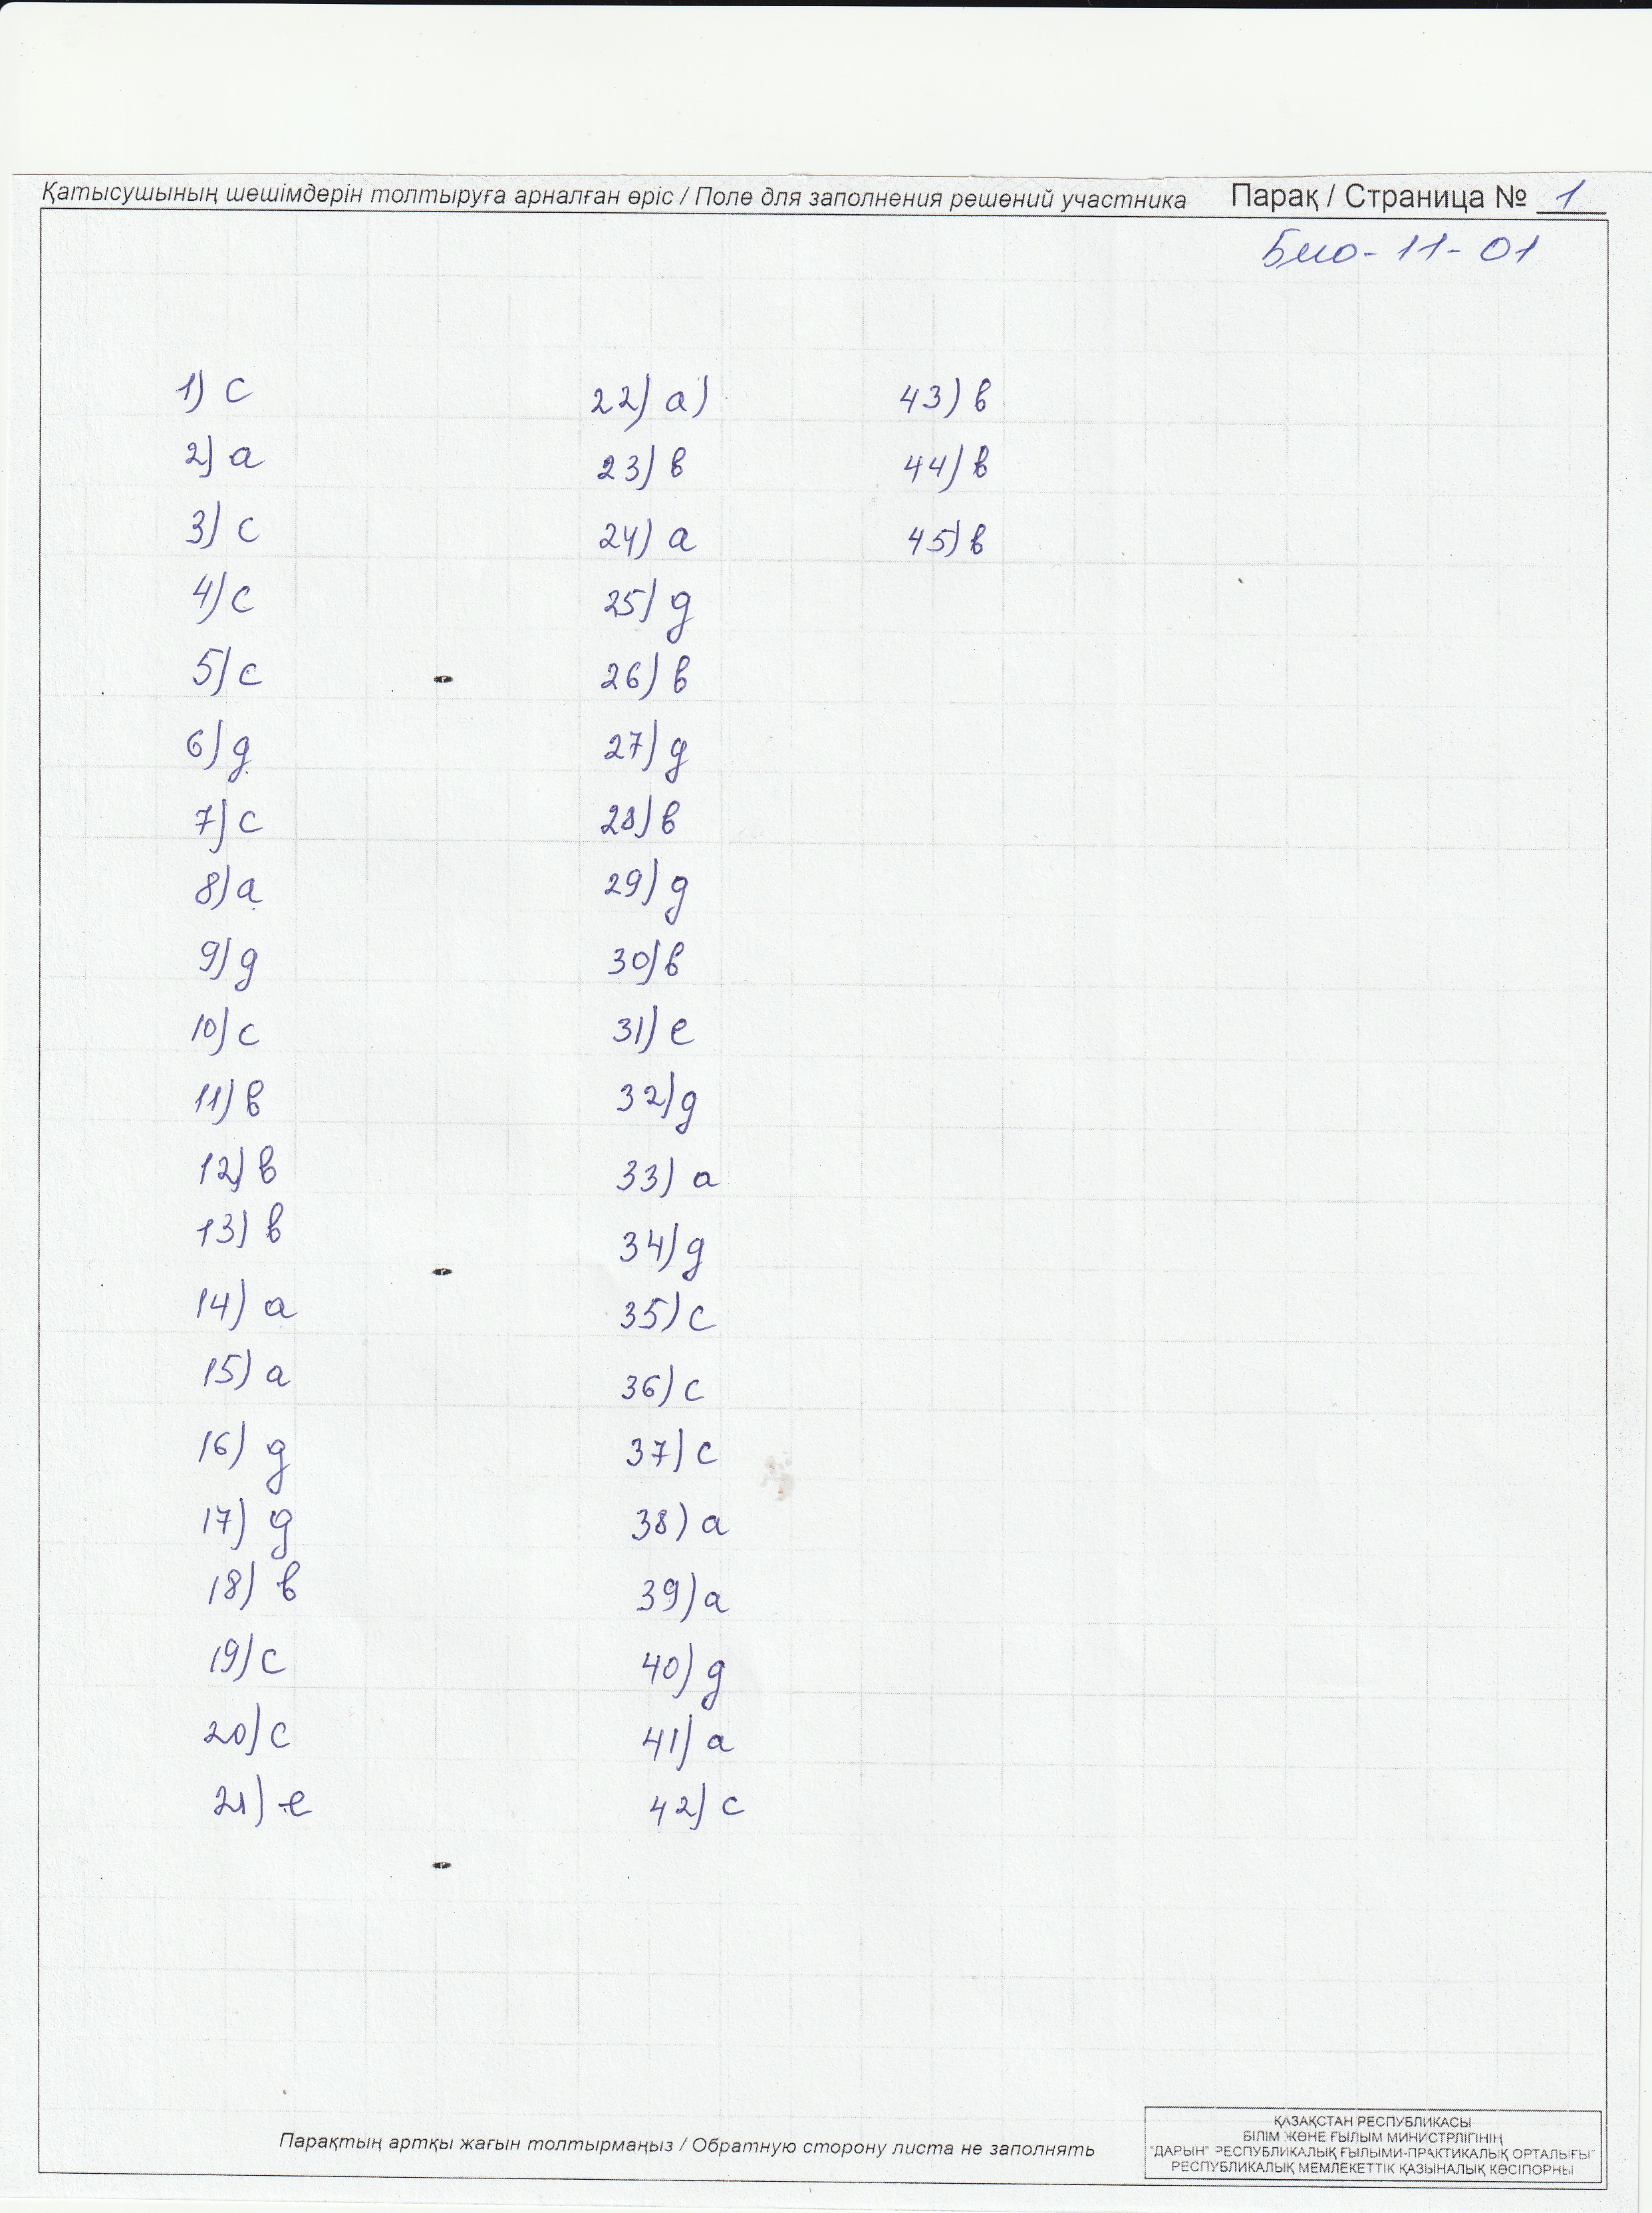 Қатысушының шешімдерін толтыруға арналған өріс / Поле для заполнения решений участника Парақ / Страница № 1
Био-11-01
1) с
2) а
3) с
4) с
5) с
6) д
7) с
8) а
9) д
10) с
11) в
12) в
13) в
14) а
15) а
16) д
17) д
18) в
19) с
20) с
21) е
22) а)
23) в
24) а
25) д
26) в
27) д
28) в
29) д
30) в
31) е
32) д
33) а
34) д
35) с
36) с
37) с
38) а
39) а
40) д
41) а
42) с
43) в
44) в
45) в
Парақтың артқы жағын толтырмаңыз / Обратную сторону листа не заполнять
ҚАЗАҚСТАН РЕСПУБЛИКАСЫ
БІЛІМ ЖӘНЕ ҒЫЛЫМ МИНИСТРЛІГІНІҢ
"ДАРЫН" РЕСПУБЛИКАЛЫҚ ҒЫЛЫМИ-ПРАКТИКАЛЫҚ ОРТАЛЫҒЫ"
РЕСПУБЛИКАЛЫҚ МЕМЛЕКЕТТІК ҚАЗЫНАЛЫҚ КӘСІПОРНЫ